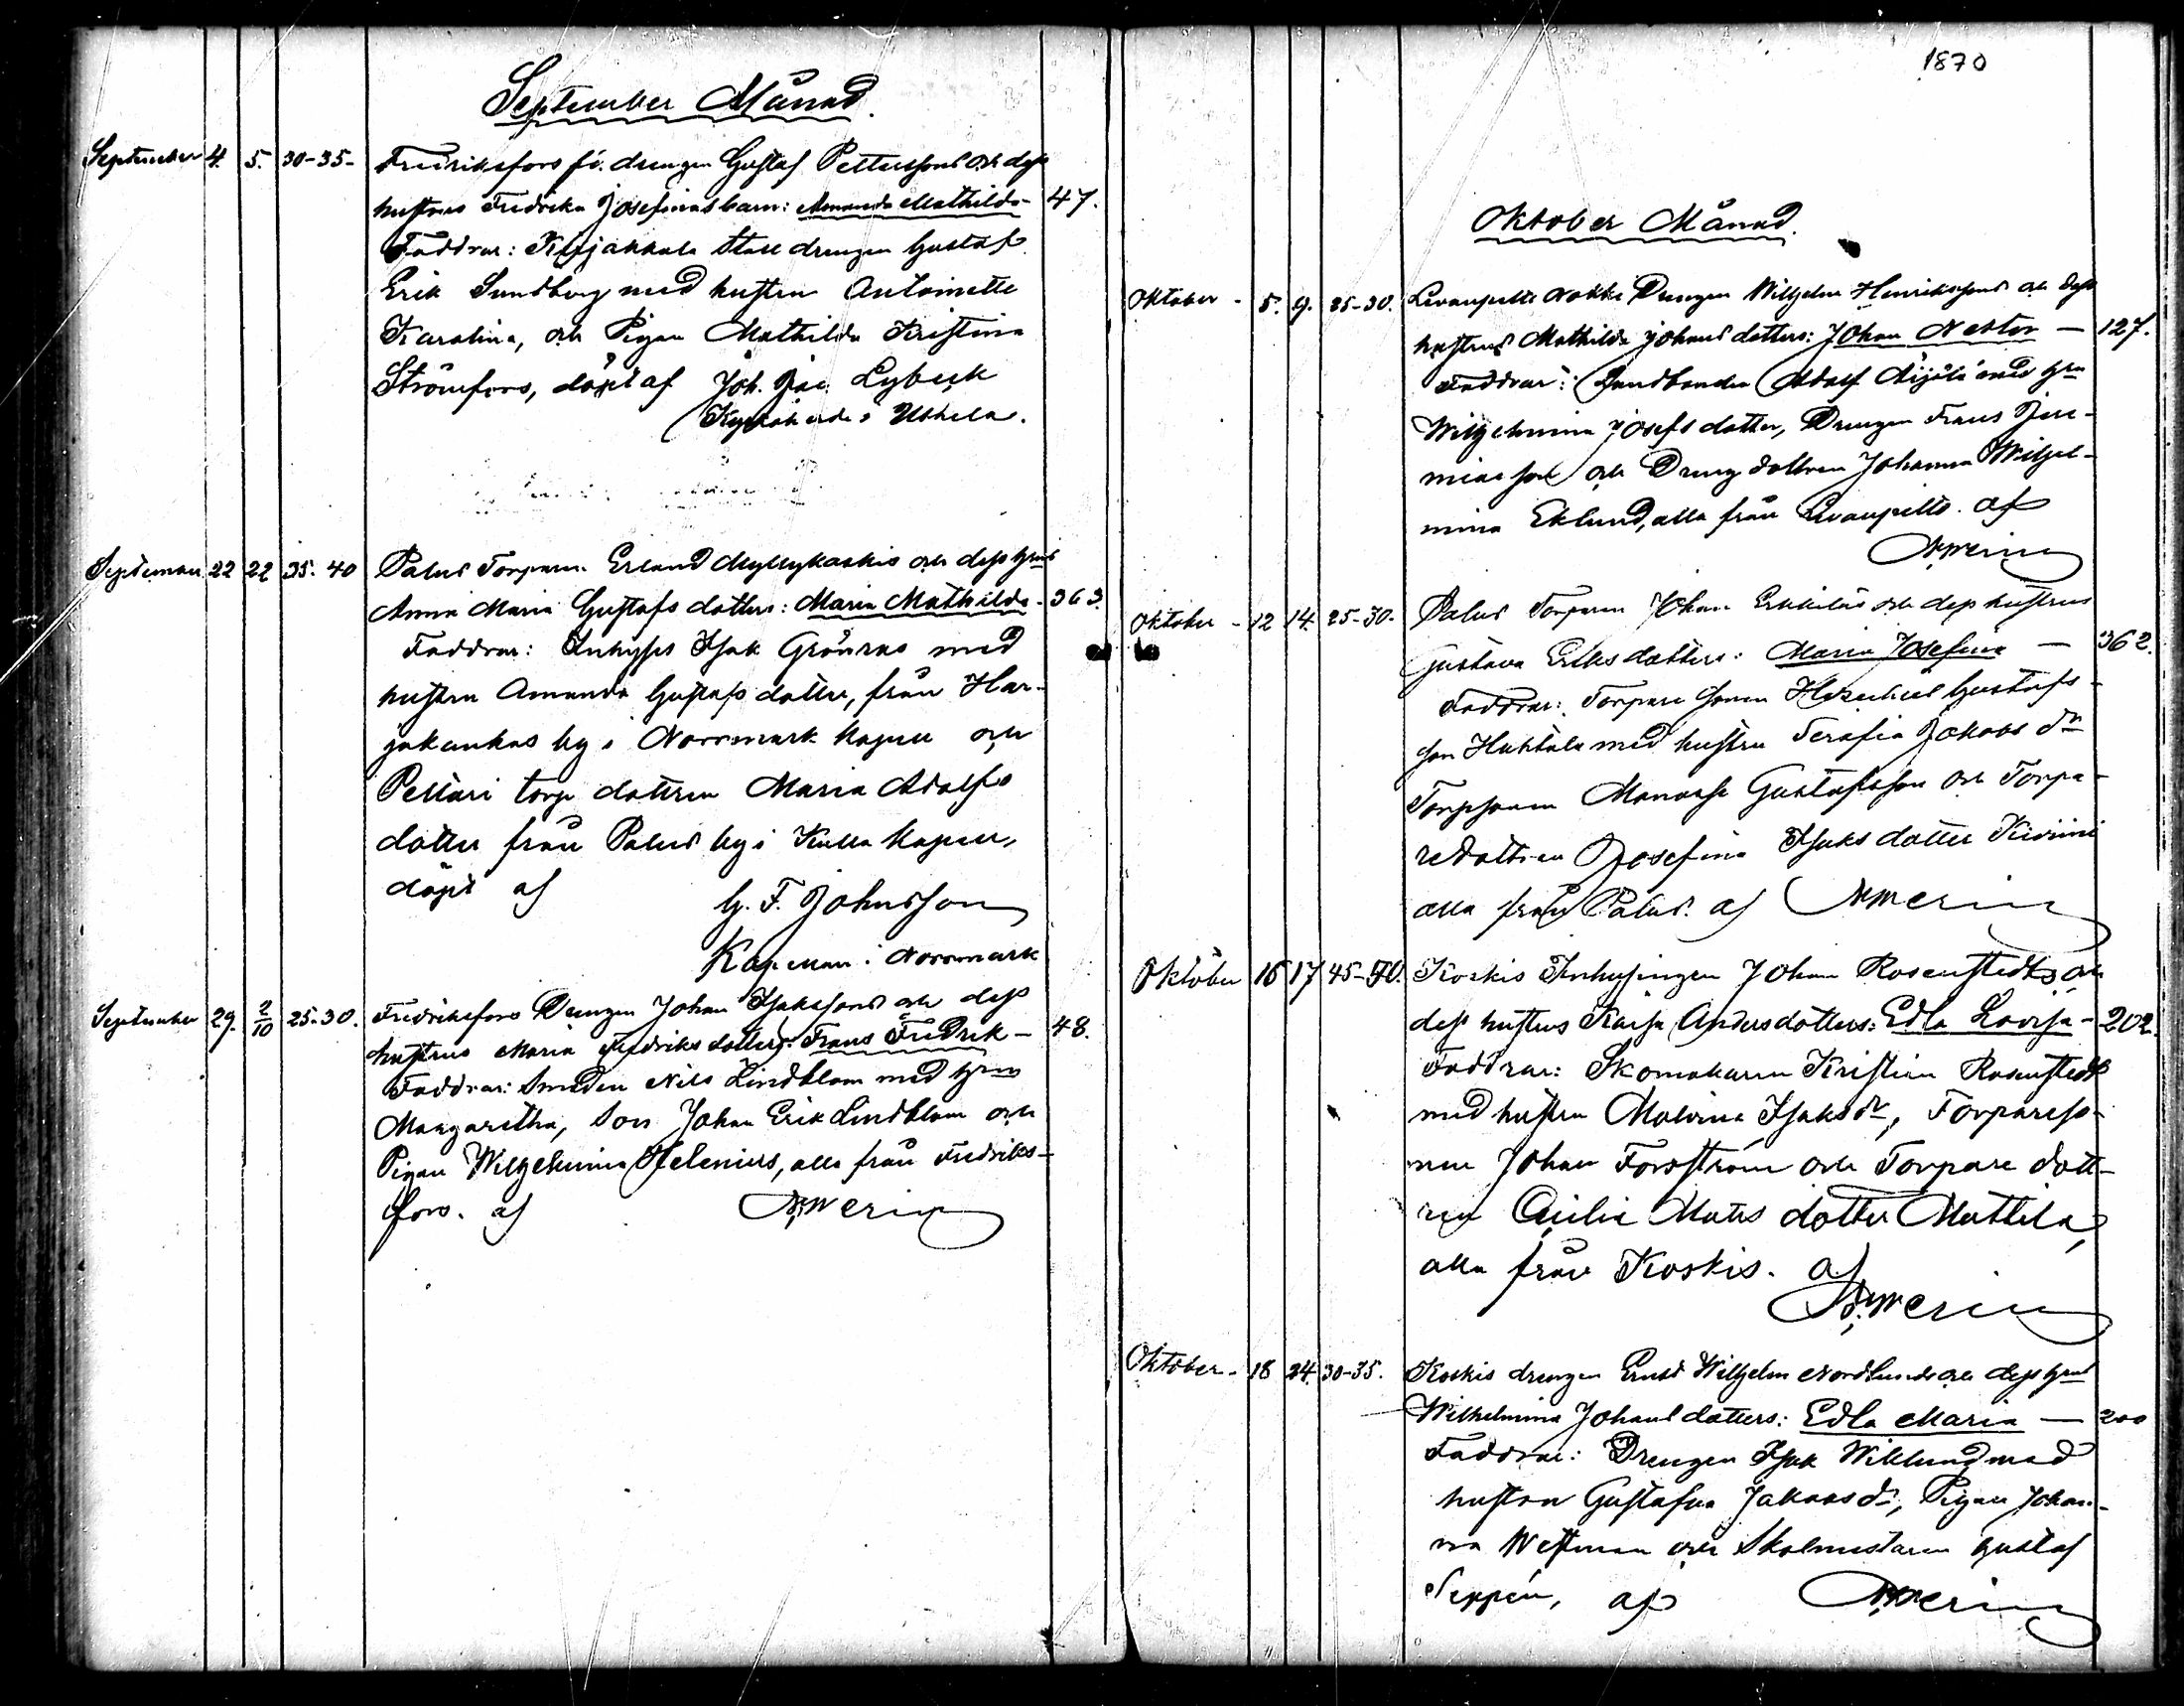 September Månad.
September 4. 5. 30-35- Fredriksfors fö. drengen Gustaf Petterssons och dess
hustrus Fredrika Josefinas barn: Amanda Mathilda- 47.
Faddrar: Stall drengen Gustaf
Erik Sundberg med hustrun Antoinette
Karolina, och Pigan Mathilda Kristina
Strömfors, döpt af Joh. Jac. Lybeck
Kyrkoherde i Ulfsila.
September 22 22 35-40 Palus Torparen Erland Myllykoskis och dess hrus
Anna Maria Gustafs dotters: Maria Mathilda - 363.
Faddrar: Inhyses Isak Grönroos med
hustru Amanda Gustafs dotter, från Har-
jakankas by i Norrmark kapell och
Pettäri torp dottren Maria Adolfs
dotter från Palus by i Kulla kapell,
döpt af G. F. Johnsson
Kapellan i Norrmark
September 29. 2/10 25-30. Fredriksfors Drengen Johan Isakssons och dess
hustrus Maria Fredriks dotters: Frans Fredrik - 48.
Faddrar: Smeden Nils Lindblom med hrun
Margaretha, Son Johan Erik Lindblom och
Pigan Wilhelmina Helenius, alla från Fredriks-
fors. af
1870
Oktober Månad.
Oktober - 5. 9. 25-30. Levanpelto Drengen Wilhelm Henrikssons och dess
hustrus Mathilda Johans dotters: Johan Nestor — 127.
Faddrar: Landbonden Adolf Äijälä med hru
Wilhelmina Josefs dotter, Drengen Frans Jere-
miasson och Dreng dottren Johanna Wilhel-
mina Eklund, alla från Levanpelto. af
Oktober - 12 14. 25-30- Palus Torparen Johan Erkkiläs och dess hustrus
Gustava Eriks dotters: Maria Josefina — 362.
Faddrar: Torpare sonen Hezekiel Gustafs-
son Huhtala med hustru Serafia Jakobs dr
Torpsonen Manasse Gustafsson och Torpa-
redottren Josefina Isaks dotter Kiviniemi
alla från Palus. af
Oktober 16 17 45-40. Koskis Inhysingen Johan Rosenstedts och
dess hustrus Kaisa Anders dotters: Edla Lovisa - 202.
Faddrar: Skomakaren Kristian Rosenstedt
med hustru Malvina Isaks dr, Torpareso-
nen Johan Forsström och Torpare dott-
ren Cecilia Mats dotter Mattila,
alla från Koskis. af
Oktober - 18 24. 30-35. Koskis drengen Ernst Wilhelm Nordlunds och dess hrus
Wilhelmina Johans dotters: Edla Maria — 200
Faddrar: Drengen Isak Wiklund med
hustru Gustafva Jakobs dr, Pigan Johan-
na Westman och Skolmästaren Gustaf
Seppén, af